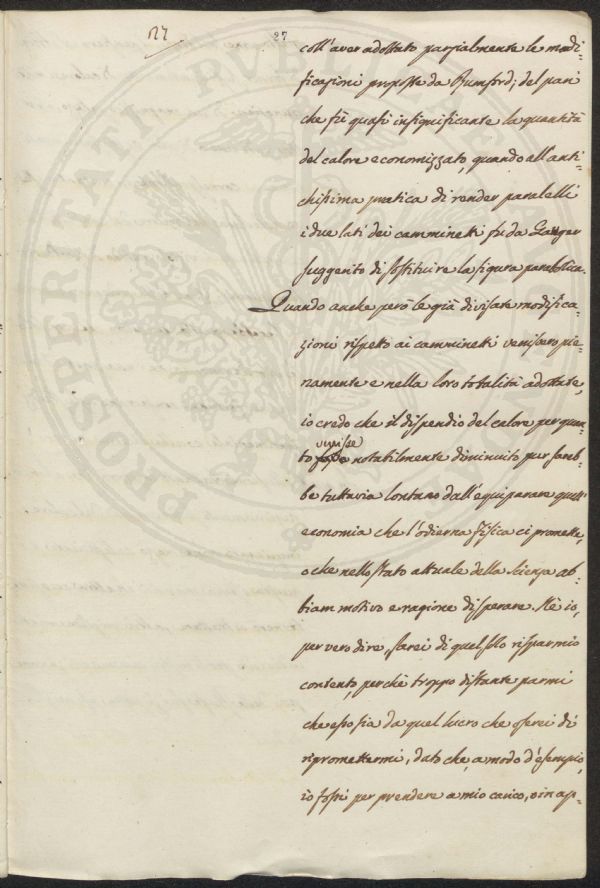 27
27
coll'aver adottato parzialmente le modi-
ficazioni proposte da Rumford; del pari
che fù quasi insignificante la quantità
del calore economizzato, quando all'anti-
chissima pratica di render paralelli
i due lati dei camminetti fu da Gauger
suggerito di sostituire la figura parabolica.
Quando anche però le già divisate modifica-
zioni rispetto ai camminetti venissero pie-
namente e nella loro totalità adottate,
io credo che il dispendio del calore per quan-
venisse
to notabilmente diminuito pur sareb-
be tuttavia lontano dall'equiparare quell'
economia che l'odierna Fisica ci promette,
o che nello stato attuale della scienza ab-
biam motivo e ragione di sperare. Nè io,
per vero dire, sarei di quel solo risparmio
contento, perchè troppo distante parmi
che esso sia da quel lucro che oserei di
ripromettermi, dato che, a modo d'esempio,
io fossi per prendere a mio carico, o in ap-
PROSPERITATI PVBLICAE